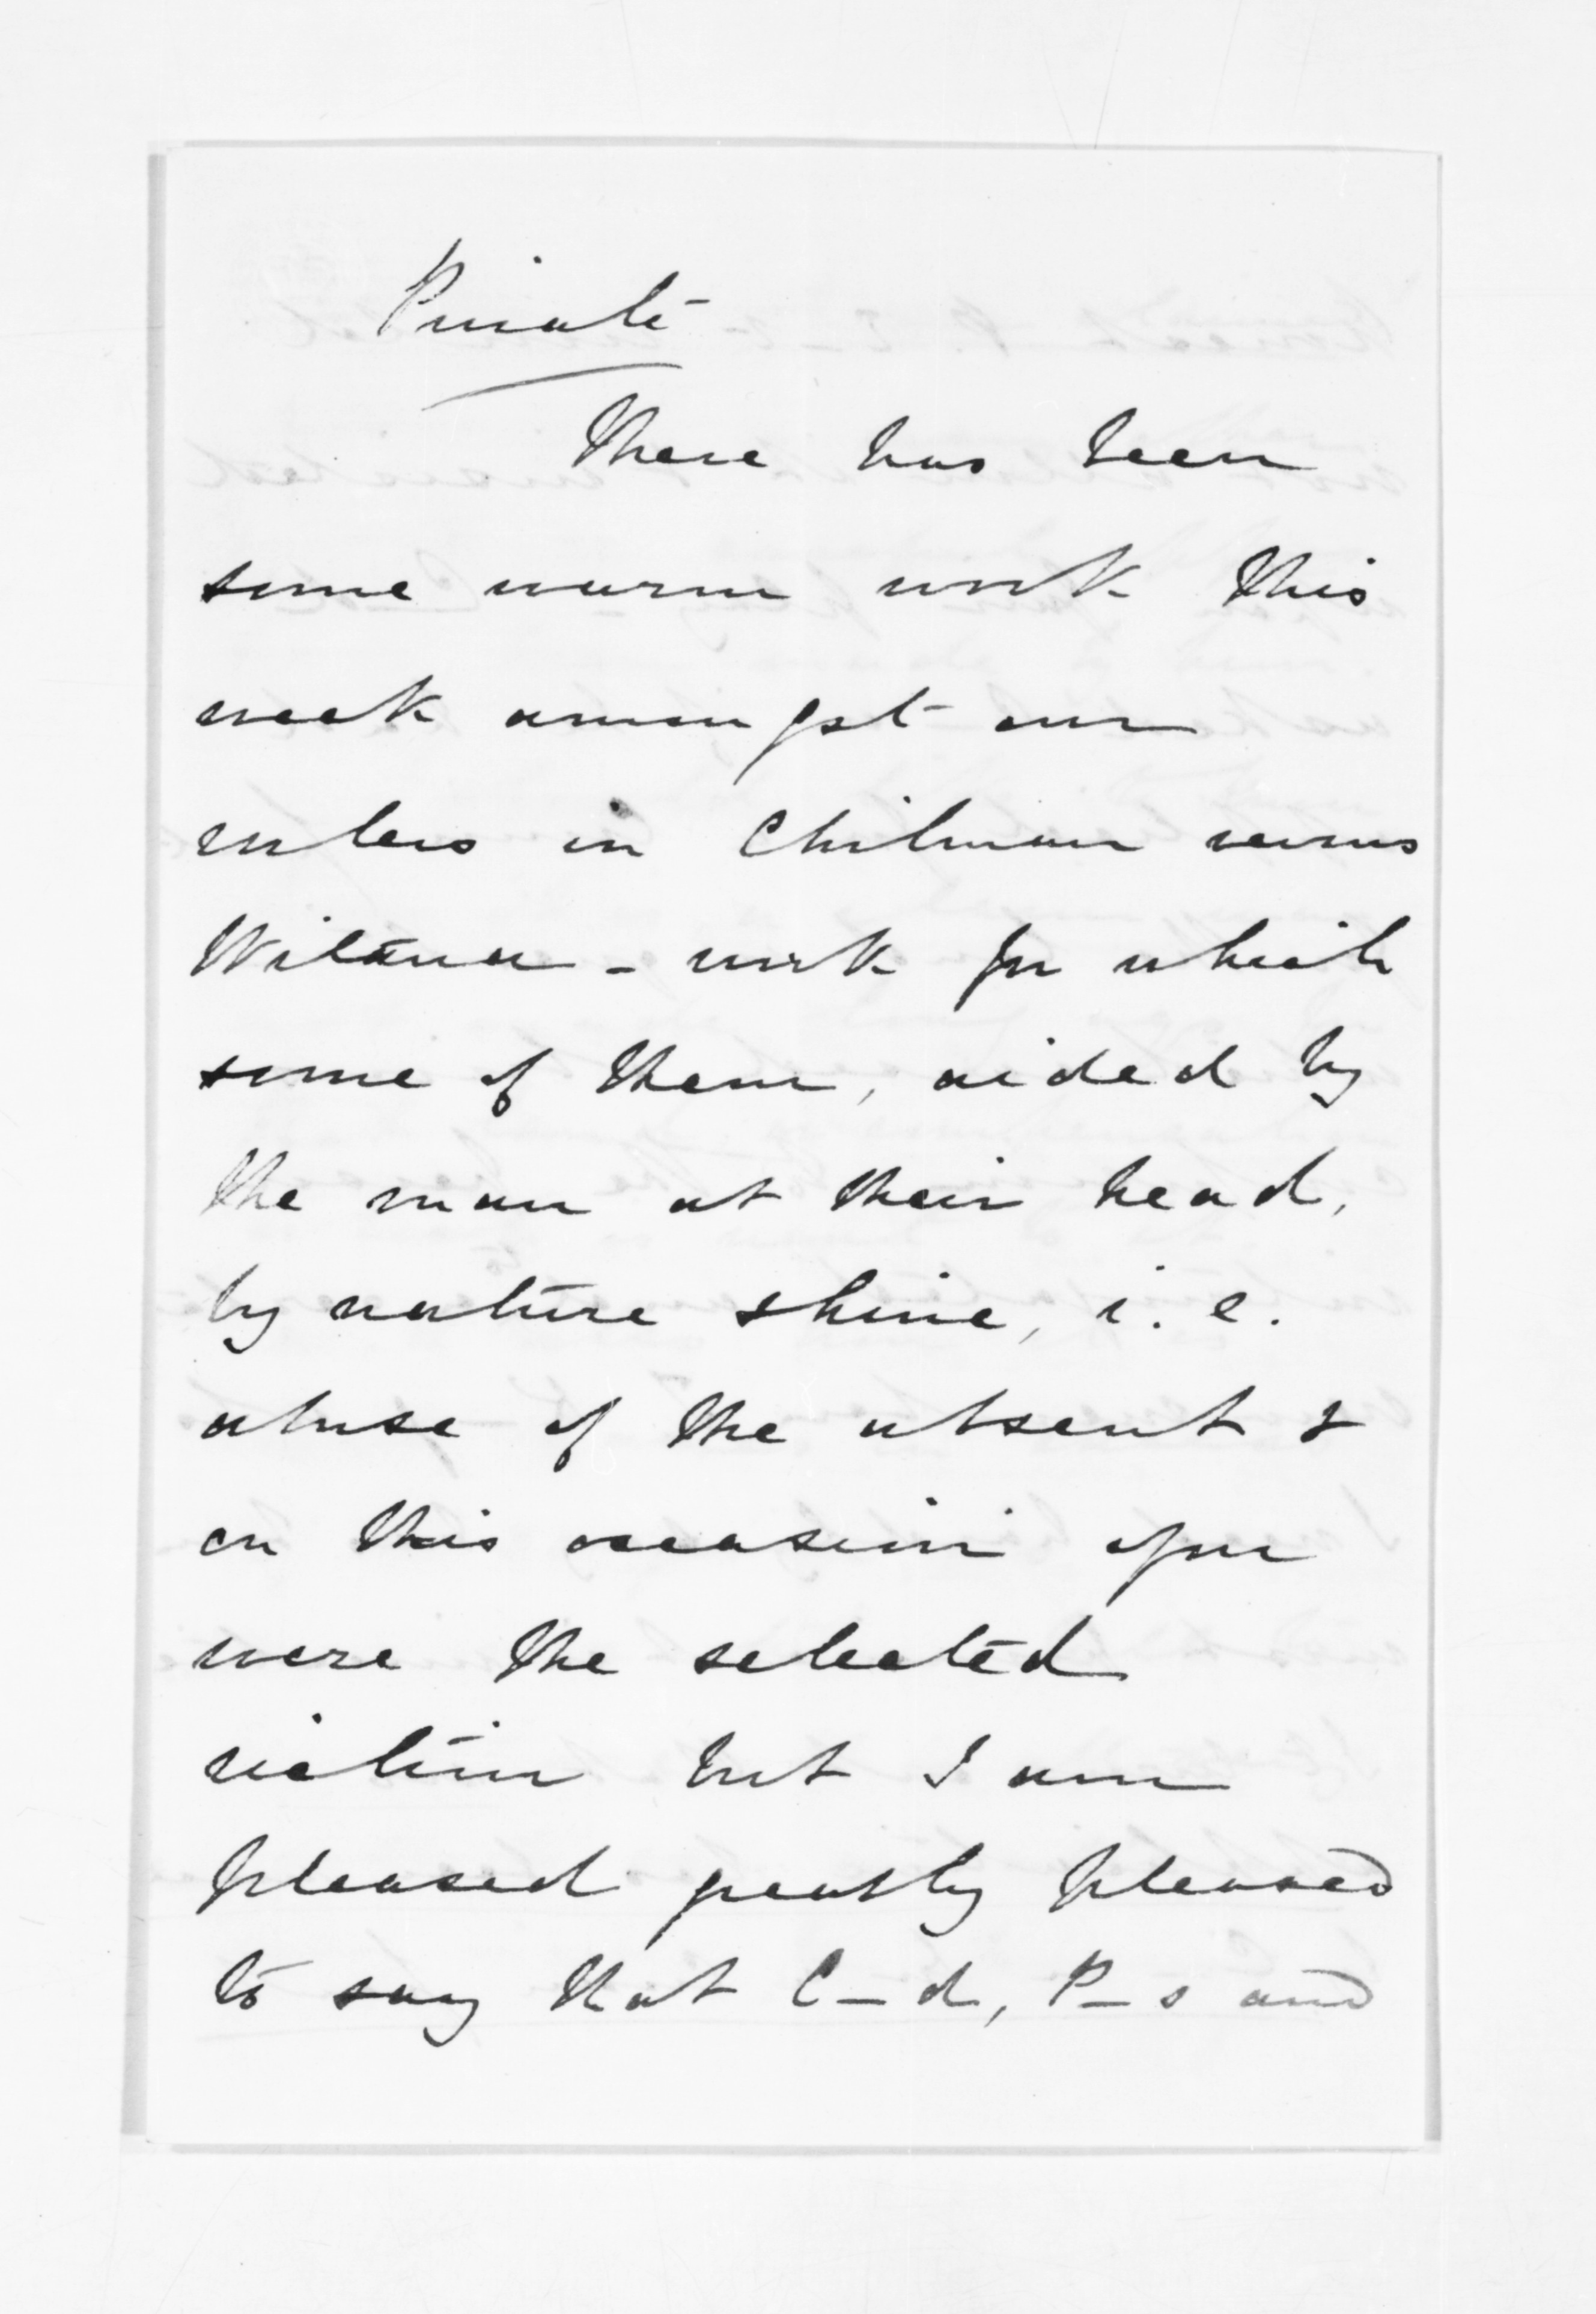 Private
There has been
some warm work this
week amongst our
rulers in Chilman versus
Wilson - work for which
some of them, aided by
the man at their head,
by nature shine, i.e.
abuse of the absent &
on this occasion you
were the selected
victim but I am
pleased greatly pleased
to say that C-d, P-s and